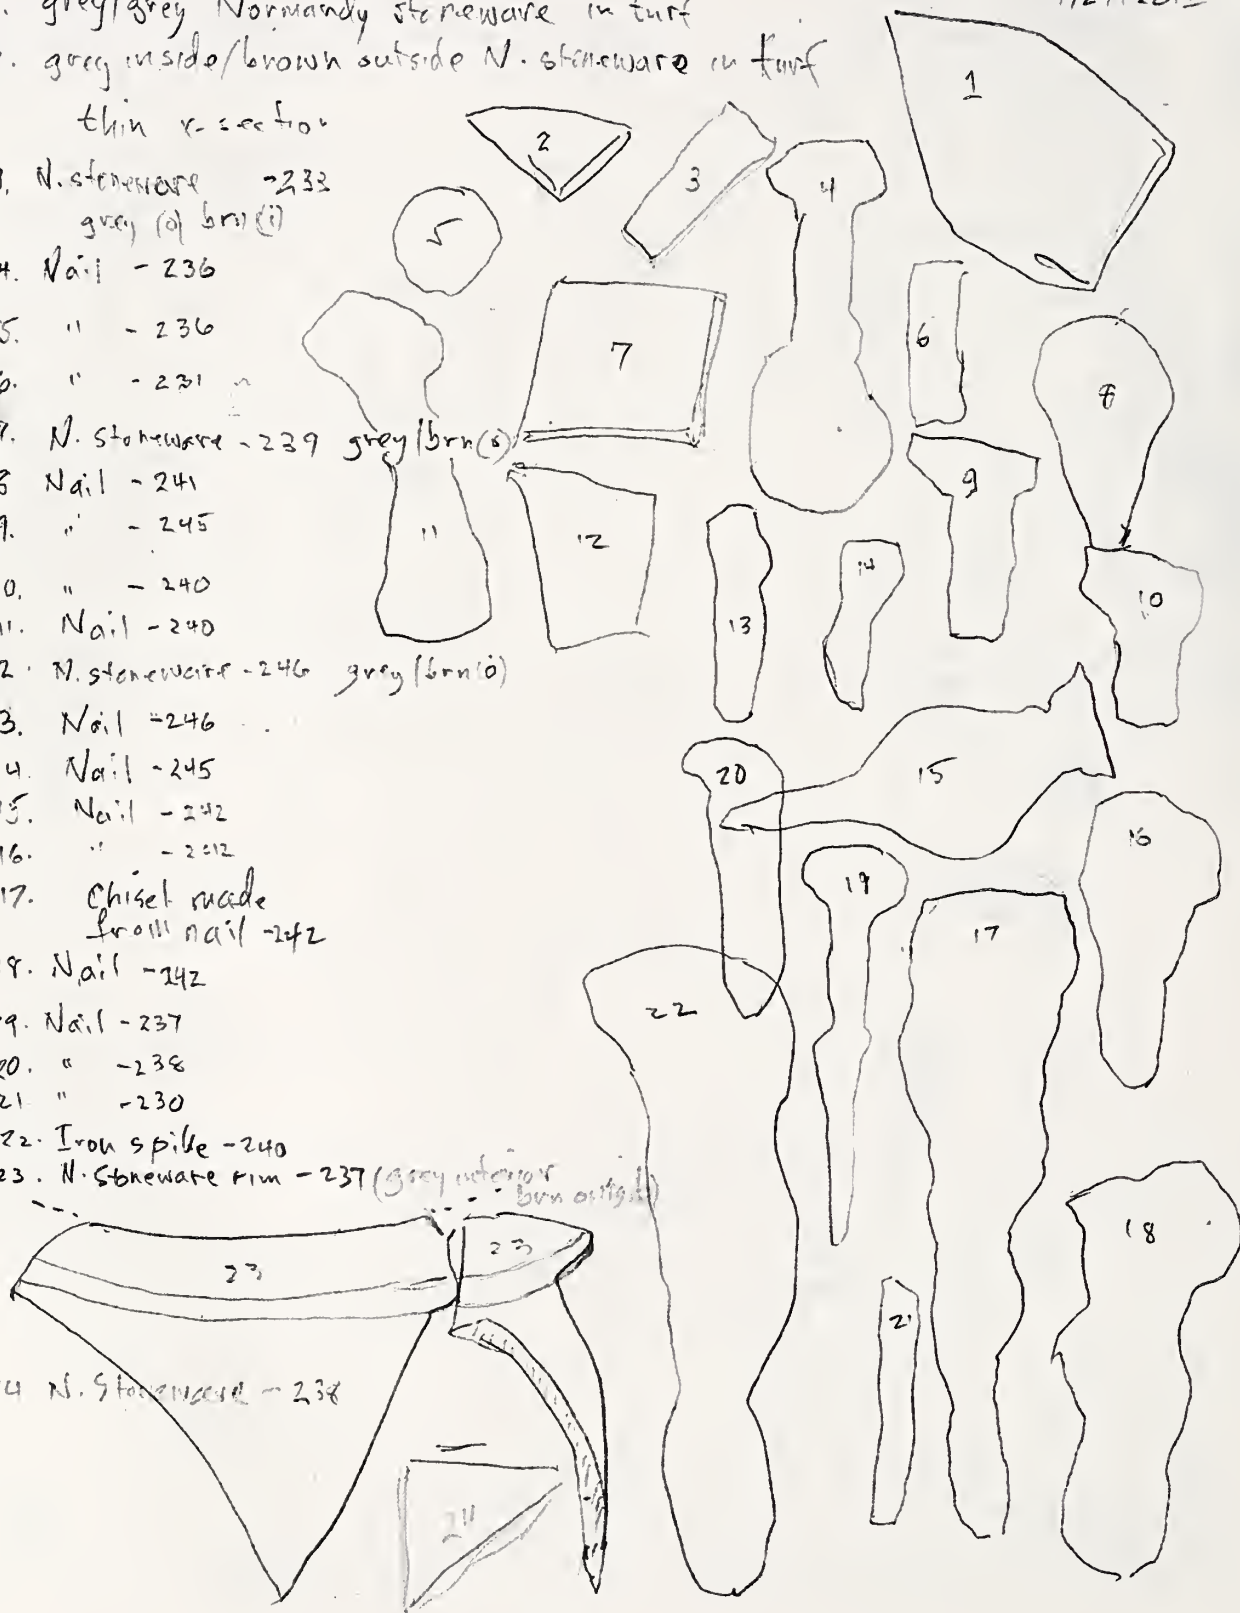 . grey/grey Normandy stoneware in turf
. grey inside/brown outside N. stoneware in turf
thin x-section
3. N. stoneware -233
grey (o) brn (i)
4. Nail - 236
5. " - 236
6. " - 231
7. N. stoneware - 239 grey/brn(o)
8 Nail - 241
9. " - 245
0. " - 240
11. Nail - 240
2. N. stoneware - 246 grey/brn(o)
3. Nail - 246
4. Nail - 245
5. Nail - 242
16. " - 242
17. Chisel made
from nail - 242
8. Nail - 242
9. Nail - 237
20. " - 238
21 " - 230
22. Iron spike - 240
23. N. Stoneware rim - 237 (grey interior
brn outside)
4 N. Stoneware - 238
1
2
3
4
5
6
7
8
9
10
11
12
13
14
15
16
17
18
19
20
21
22
23
23
24